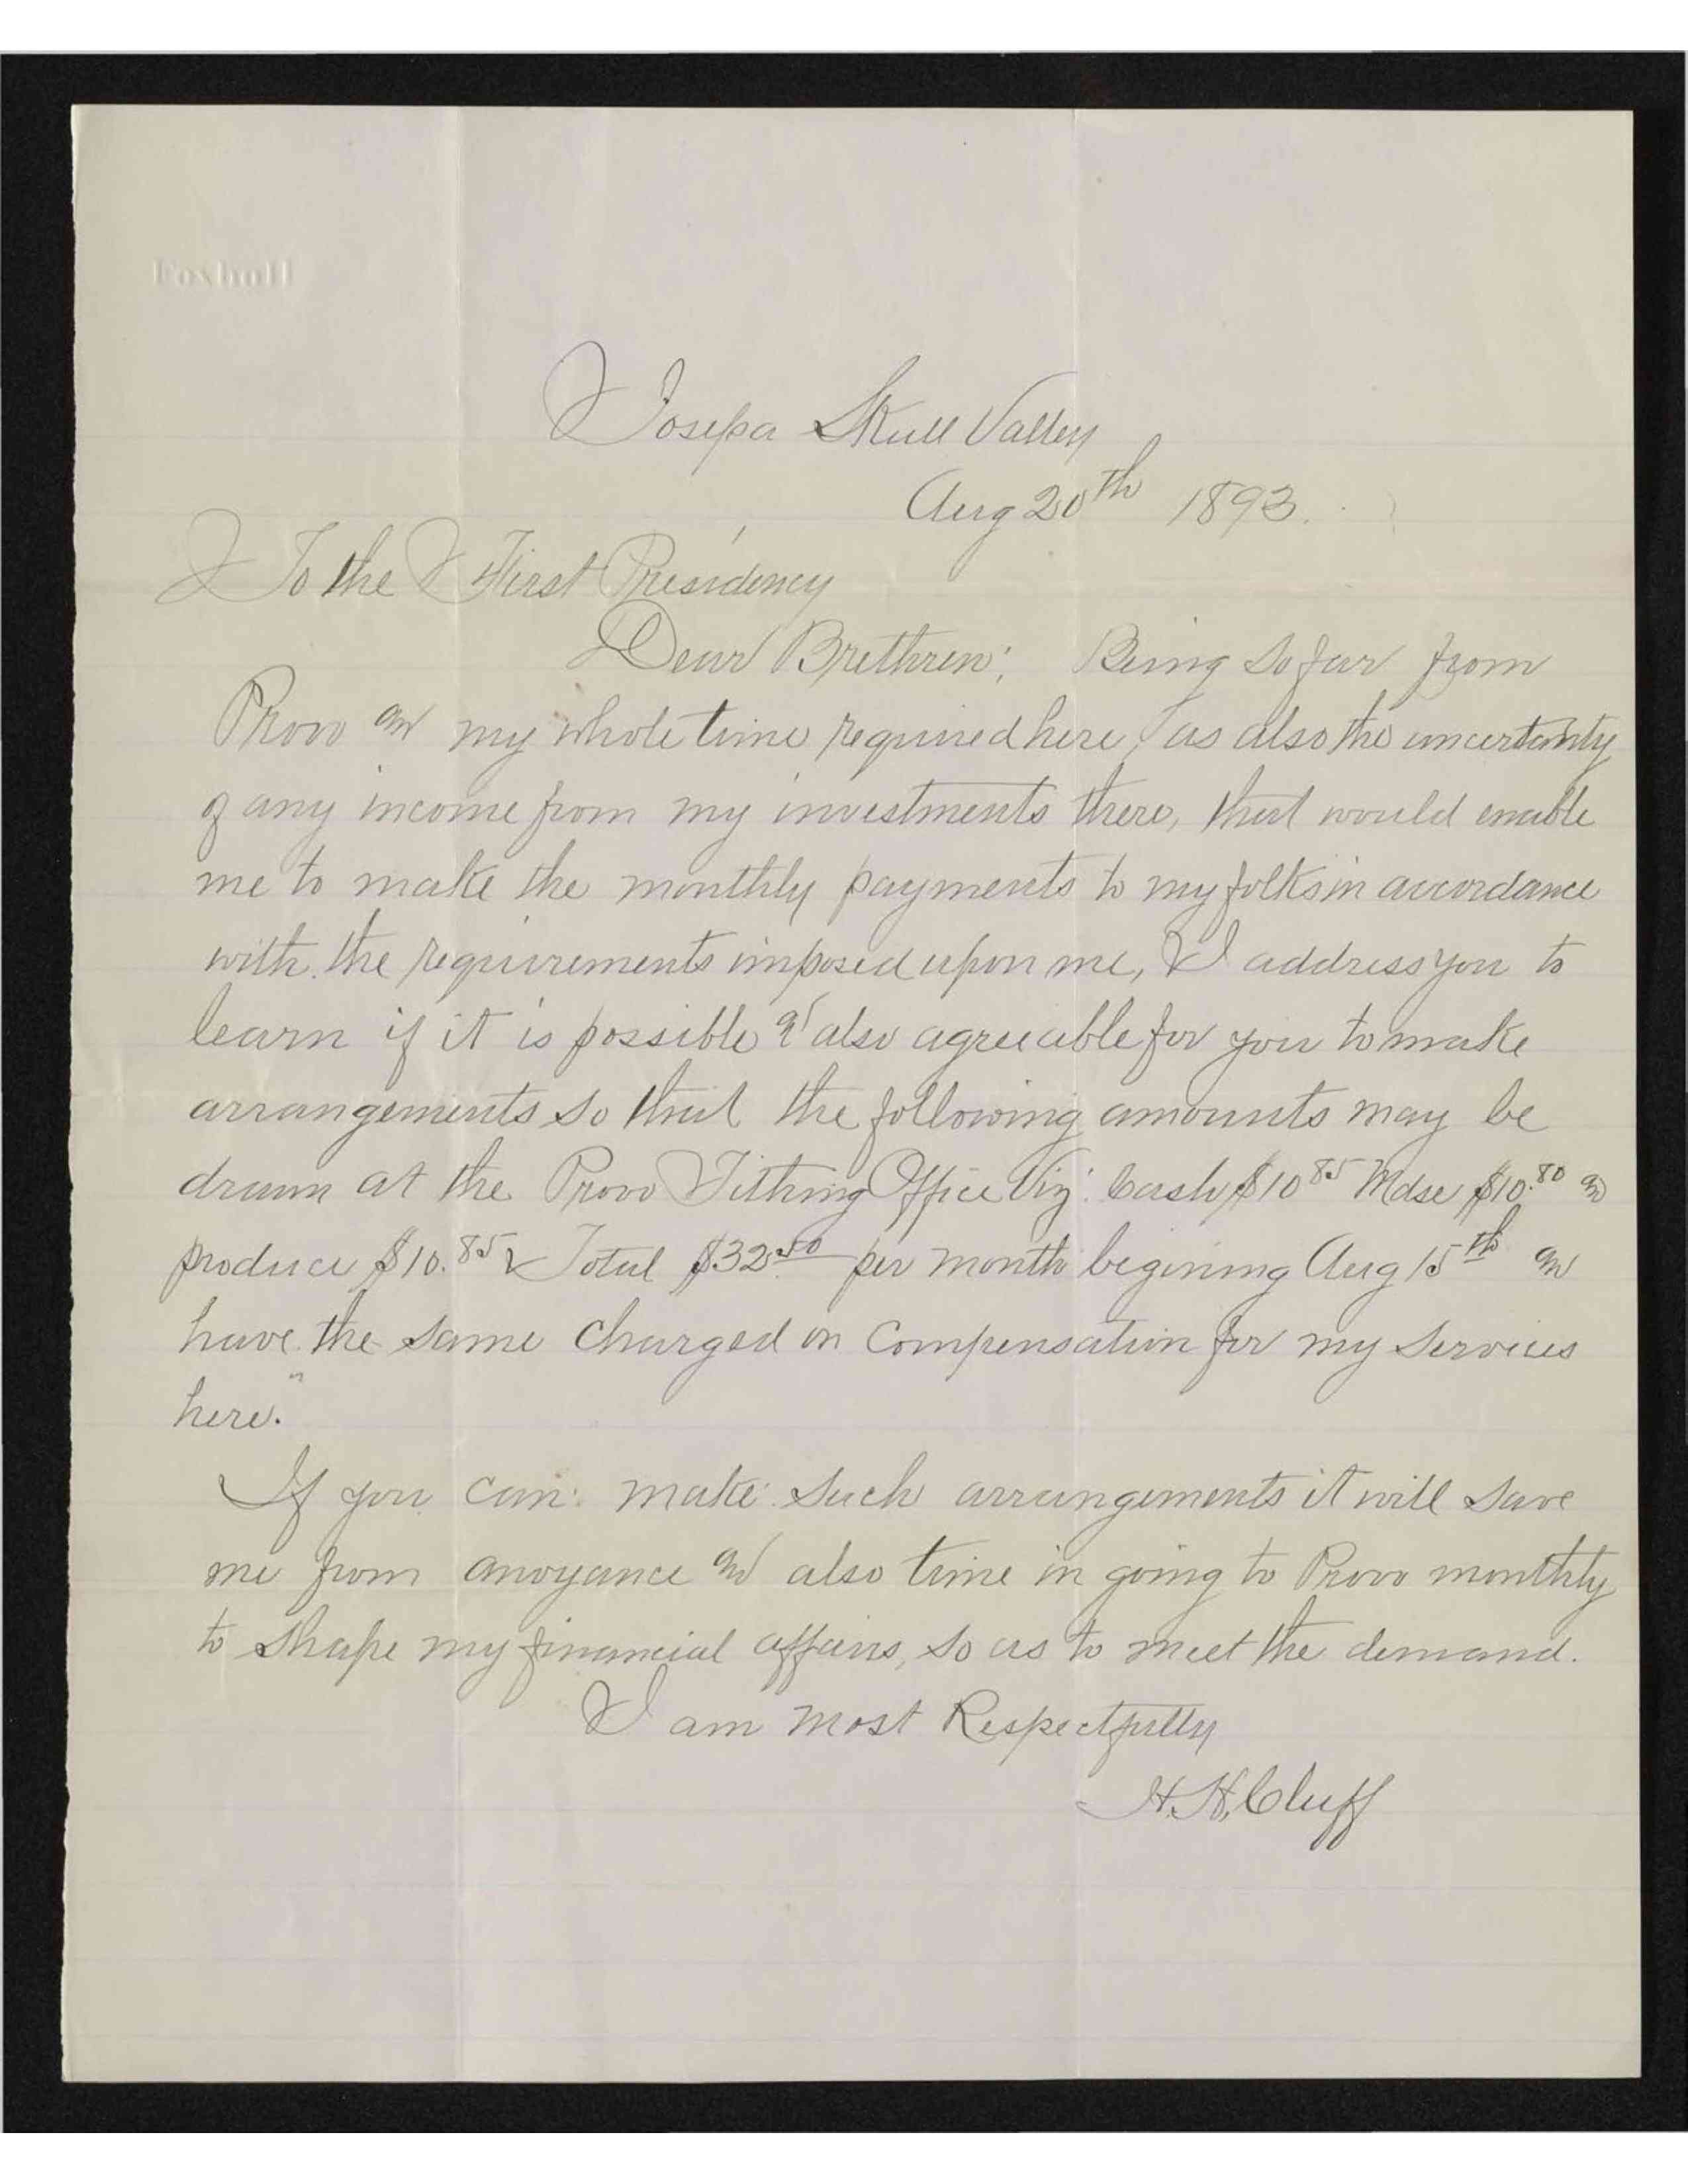 Foxhall
Iosepa Skull Valley
Aug 20th 1893.
To the First Presidency
Dear Brethren; Being so far from
Provo and my whole time required here, as also the uncertanty
of any income from my investments there, that would enable
me to make the monthly payments to my folks in accordance
with the requirements imposed upon me, I address you to
learn if it is possible & also agreeable for you to make
arrangements so that the following amounts may be
drawn at the Provo Tithing Office Viz: Cash $10 85 Mdse $10.80 and
produce $10.85 Total $32 50 per month begining Aug 15th and
have the same charged on Compensation for my services
here.
If you can make such arrangements it will save
me from anoyance and also time in going to Provo monthly
to shape my financial affairs, so as to meet the demand.
I am most Respectfully
H. H. Cluff